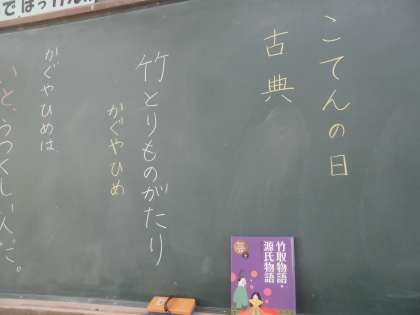 こてんの日
古典
竹とりものがたり
かぐやひめ
かぐやひめは
いと、うつくしい人だ。
竹取物語・
源氏物語